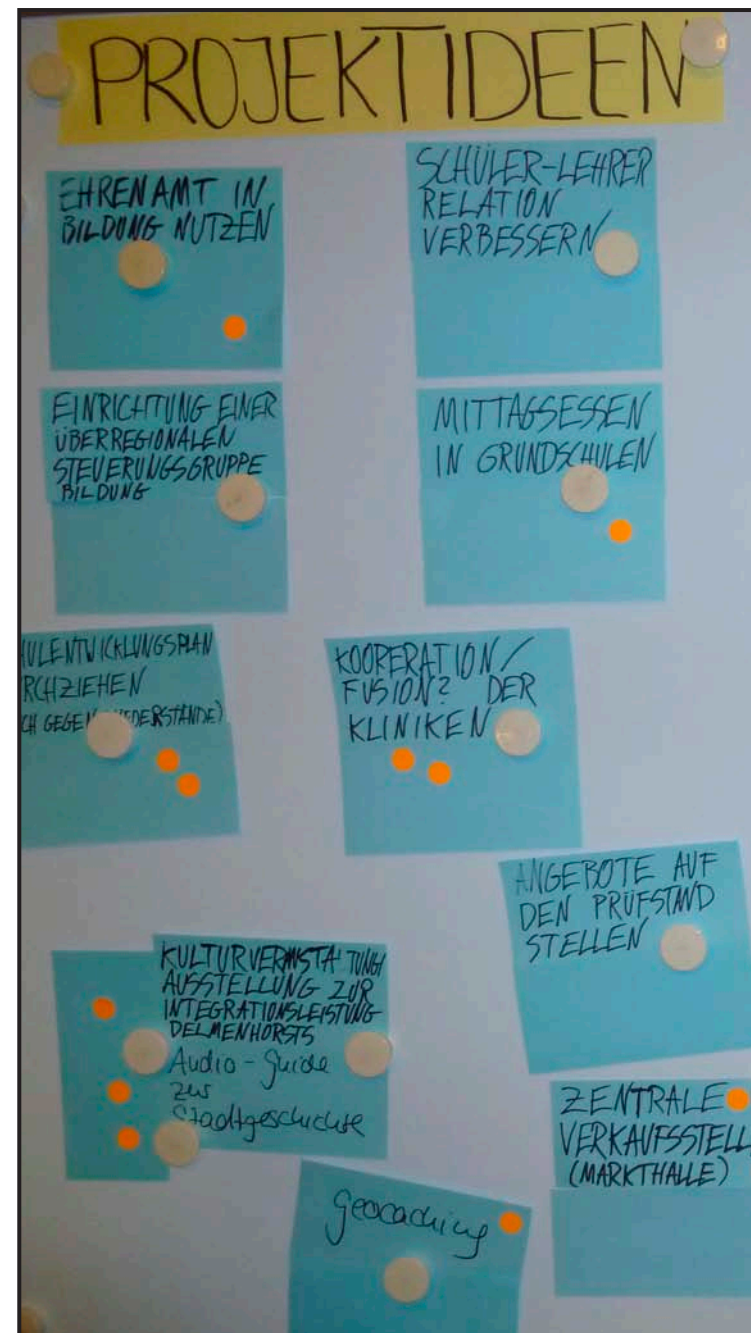 PROJEKTIDEEN
EHRENAMT IN
BILDUNG NUTZEN
SCHÜLER-LEHRER
RELATION
VERBESSERN
EINRICHTUNG EINER
ÜBERREGIONALEN
STEUERUNGSGRUPPE
BILDUNG
MITTAGSESSEN
IN GRUNDSCHULEN
HULENTWICKLUNGSPLAN
RCHZIEHEN
CH GEGEN DERSTÄNDE)
KOOPERATION/
FUSION? DER
KLINIKEN
ANGEBOTE AUF
DEN PRÜFSTAND
STELLEN
KULTURVERANSTALTUNG/
AUSSTELLUNG ZUR
INTEGRATIONSLEISTUNG
DELMENHORSTS
Audio-Guide
zur
Stadtgeschichte
ZENTRALE
VERKAUFSSTELL
(MARKTHALLE)
Geocaching